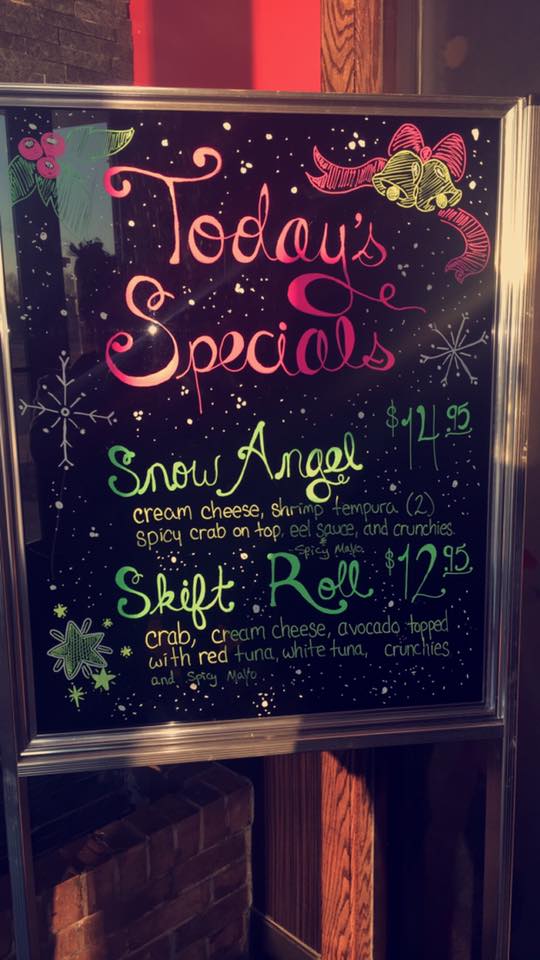 Today's
Specials
Snow Angel $14.95
cream cheese, shrimp tempura (2)
spicy crab on top, eel sauce, and crunchies
& Spicy Mayo
Skift Roll $12.95
crab, cream cheese, avocado topped
with red tuna, white tuna, crunchies
and Spicy Mayo